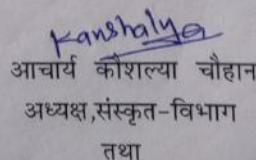 Kanshalya
आचार्य कौशल्या चौहान
अध्यक्ष,संस्कृत-विभाग
तथा